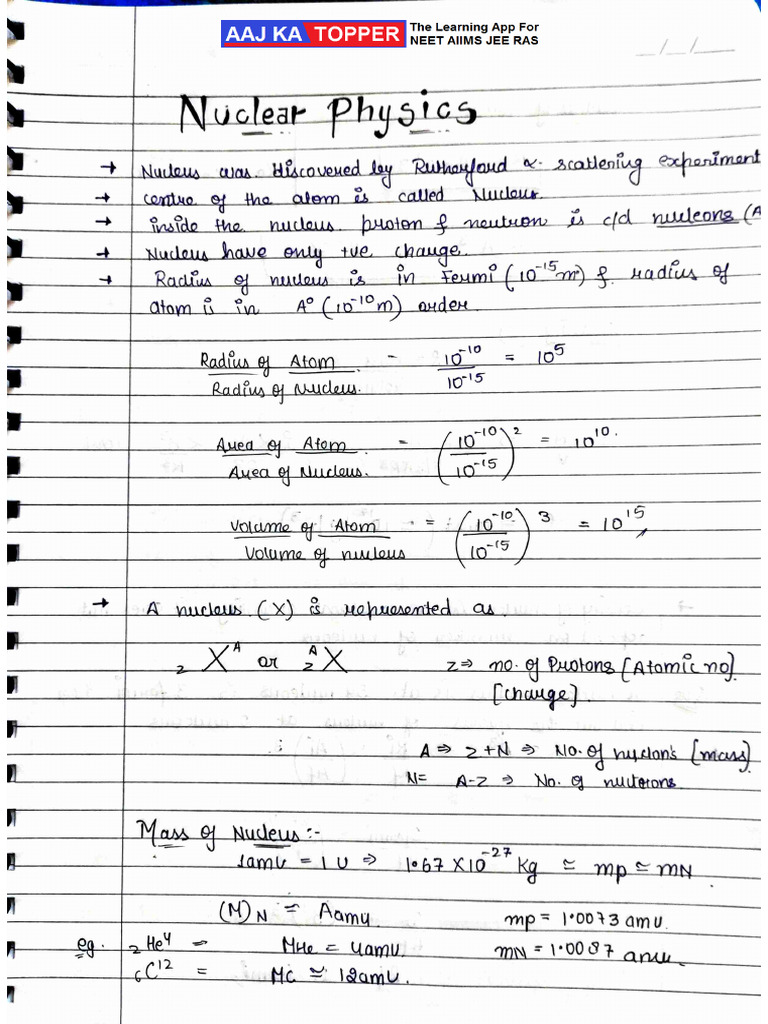 AAJ KA TOPPER The Learning App For
NEET AIIMS JEE RAS
_/_/__
Nuclear Physics
→ Nucleus was discovered by Rutherford α- scattering experiment
→ centre of the atom is called Nucleus.
→ inside the nucleus proton & neutron is c/d nucleons (A
→ Nucleus have only +ve charge.
→ Radius of nucleus is in Fermi (10⁻¹⁵m) & radius of
atom is in A° (10⁻¹⁰m) order.
Radius of Atom / Radius of Nucleus. = 10⁻¹⁰ / 10⁻¹⁵ = 10⁵
Area of Atom / Area of Nucleus. = (10⁻¹⁰ / 10⁻¹⁵)² = 10¹⁰.
Volume of Atom / Volume of nucleus = (10⁻¹⁰ / 10⁻¹⁵)³ = 10¹⁵
→ A nucleus (X) is represented as
zXᴬ or ᴬzX z ⇒ no. of Protons [Atomic no].
[charge].
∴ A ⇒ z+N ⇒ No. of nucleons [mass]
N= A-z ⇒ No. of neutrons
Mass of Nucleus :-
1amu = 1 U ⇒ 1.67 X10⁻²⁷ Kg ≃ mp ≃ mN
(M)N ≃ Aamu. mp = 1.0073 amu.
eg. ₂He⁴ = MHe = 4amu. mN = 1.0087 amu.
₆C¹² = MC ≅ 12amu.